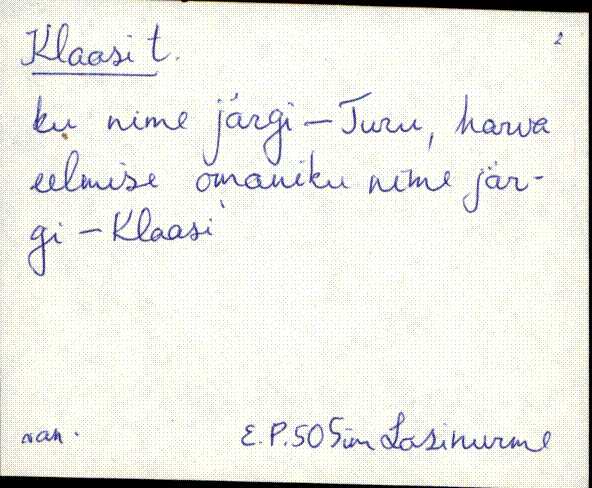 Klaasi t. 2
ku nime järgi – Turu, harva
eelmise omaniku nime jär-
gi – Klaasi
van.
E.P. 50 Sim Lasinurme